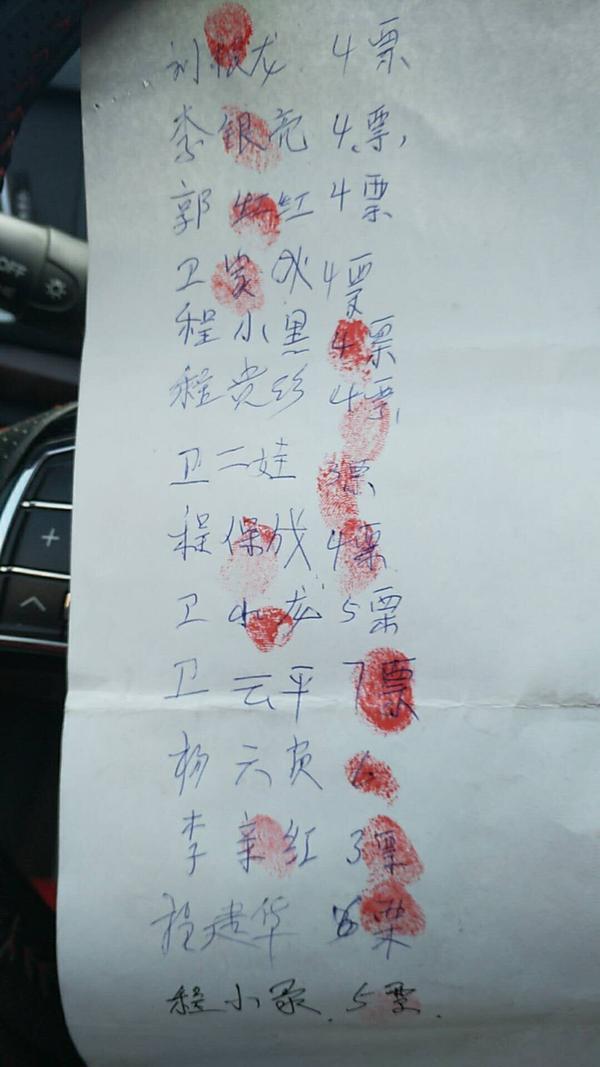 刘根龙 4票
李银亮 4票,
郭红红 4票
卫 成 4票
程小黑 4票
程贵珍 4票
卫二娃 3票
程保成 4票
卫小龙 5票
卫云平 7票
杨六
李辛红 3票
程建华 票
程小家. 5票.
OFF
+